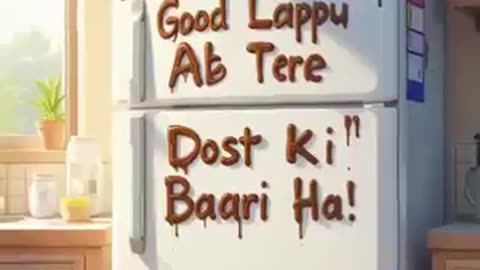 Good Lappu
Ab Tere
Dost Ki"
Baari Ha!